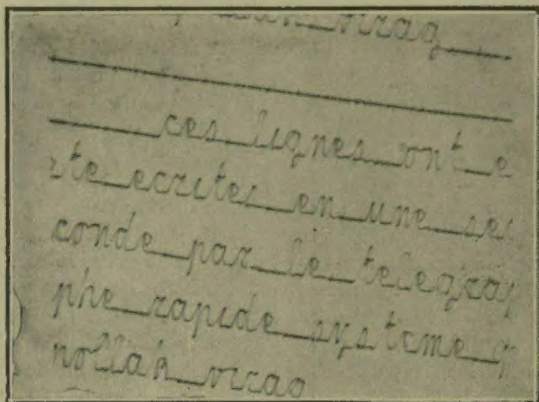 virag
ces lignes ont e
te ecrites en une se
conde par le telegrap
phe rapide systeme p
pollak virag